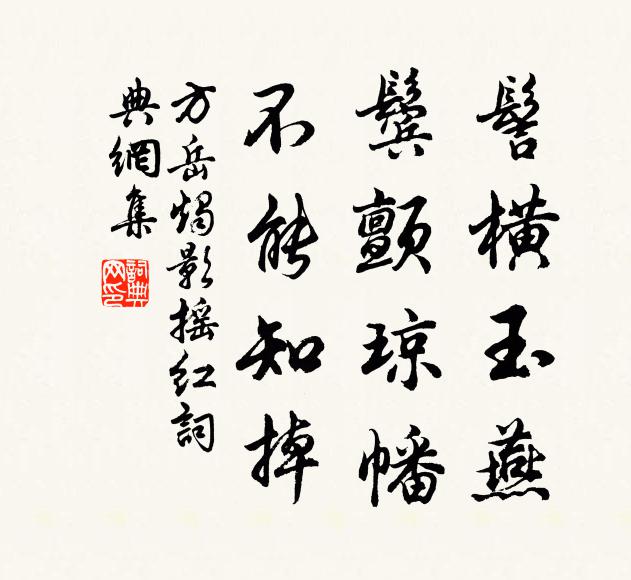 髻橫玉燕
鬢顫琼幡
不能知掉
方岳燭影搖紅詞
典網集
詞典網印